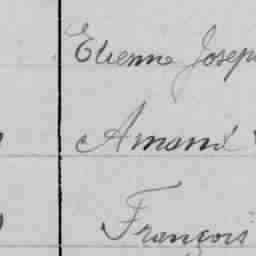 Etienne Joseph
Amand
François